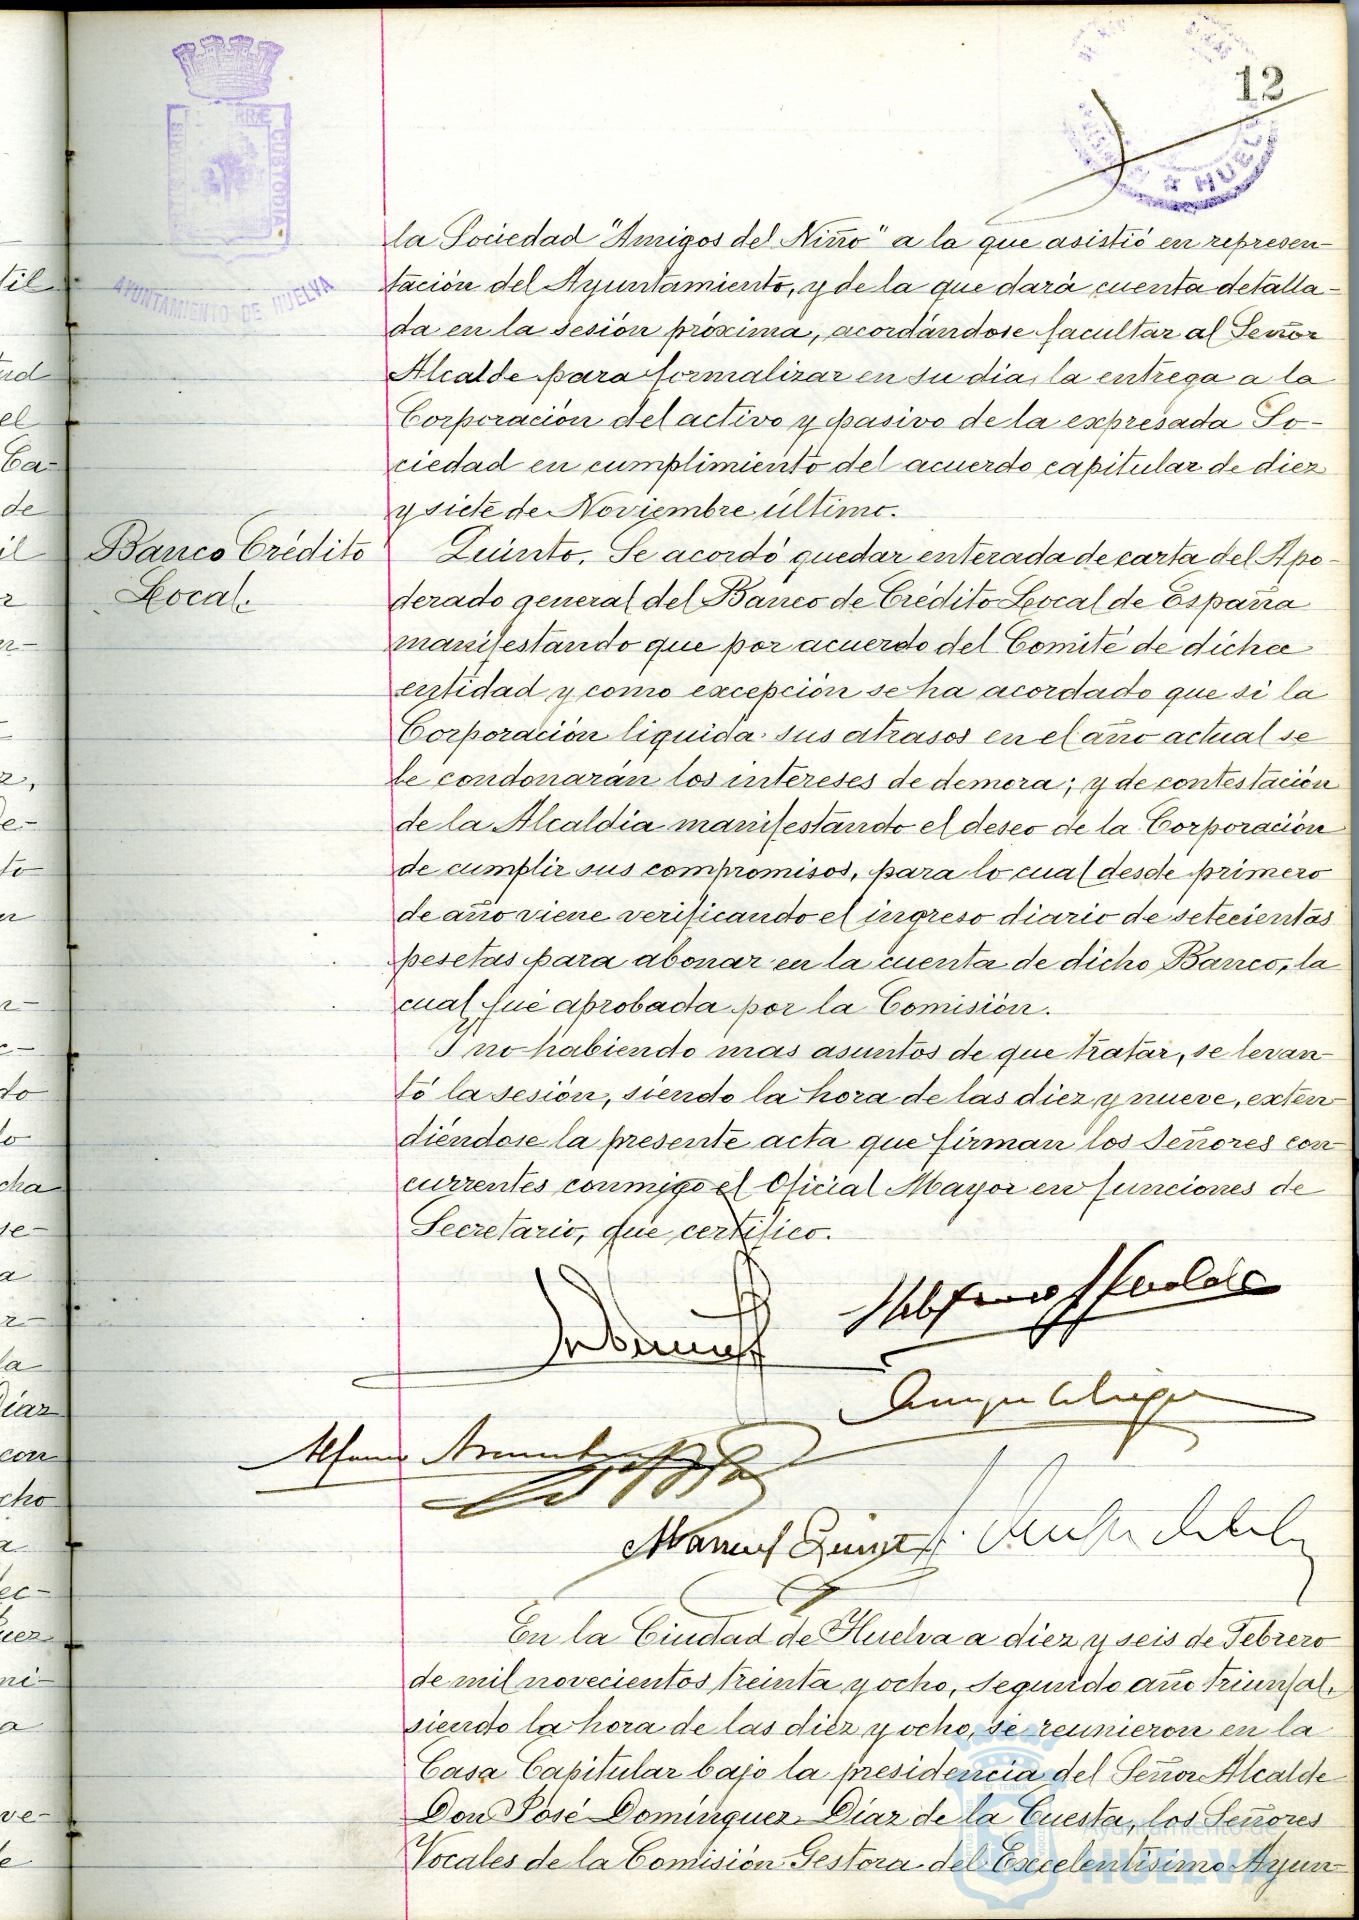 12
HUELVA
CUSTODIA
AYUNTAMIENTO DE HUELVA
la Sociedad "Amigos del Niño" a la que asistió en represen-
tación del Ayuntamiento, y de la que dará cuenta detalla-
da en la sesión próxima, acordándose facultar al Señor
Alcalde para formalizar en su dia, la entrega a la
Corporación del activo y pasivo de la expresada So-
ciedad en cumplimiento del acuerdo capitular de diez
y siete de Noviembre último.
Banco Crédito
Local.
Quinto. Se acordó quedar enterada de carta del Apo-
derado general del Banco de Crédito Local de España
manifestando que por acuerdo del Comité de dicha
entidad y como excepción se ha acordado que si la
Corporación liquida sus atrasos en el año actual se
le condonarán los intereses de demora; y de contestación
de la Alcaldia manifestando el deseo de la Corporación
de cumplir sus compromisos, para lo cual desde primero
de año viene verificando el ingreso diario de setecientas
pesetas para abonar en la cuenta de dicho Banco, la
cual fué aprobada por la Comisión.
Y no habiendo mas asuntos de que tratar, se levan-
tó la sesión, siendo la hora de las diez y nueve, exten-
diéndose la presente acta que firman los Señores con-
currentes conmigo el Oficial Mayor en funciones de
Secretario, que certifico.
Manuel
En la Ciudad de Huelva a diez y seis de Febrero
de mil novecientos treinta y ocho, segundo año triunfal,
siendo la hora de las diez y ocho, se reunieron en la
Casa Capitular bajo la presidencia del Señor Alcalde
Don José Domínguez Díaz de la Cuesta, los Señores
Vocales de la Comisión Gestora del Excelentísimo Ayun-
Ayuntamiento de
HUELVA